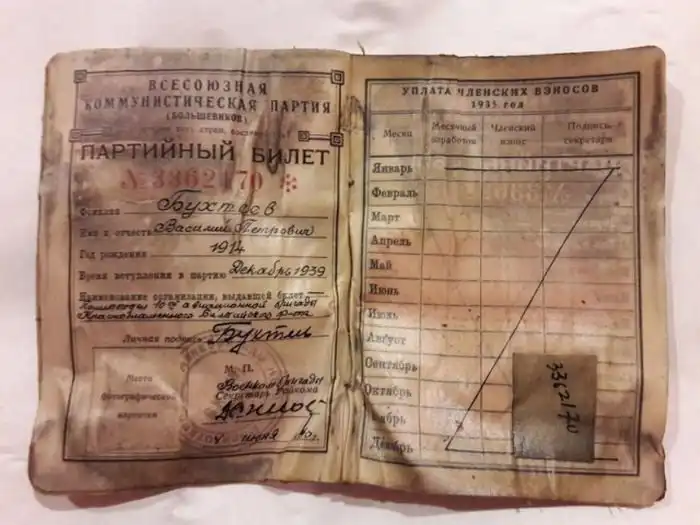 ВСЕСОЮЗНАЯ
КОММУНИСТИЧЕСКАЯ ПАРТИЯ
(БОЛЬШЕВИКОВ)
ПАРТИЙНЫЙ БИЛЕТ
№ 3362170
Фамилия Бухтеев
Имя и отчество Василий Петрович
Год рождения 1914
Время вступления в партию Декабрь 1939
Наименование организации, выдавшей билет
10й авиационной бригады
Краснознаменного Балтийского ф-та
Личная подпись
Место
фотографической
карточки
М. П.
Военком бригады
Секретарь Райкома
июня
УПЛАТА ЧЛЕНСКИХ ВЗНОСОВ
1935 год
Месяц Месячный заработок Членский взнос Подпись секретаря
Январь
Февраль
Март
Апрель
Май
Июнь
Июль
Август
Сентябрь
Октябрь
Ноябрь
Декабрь
3362170